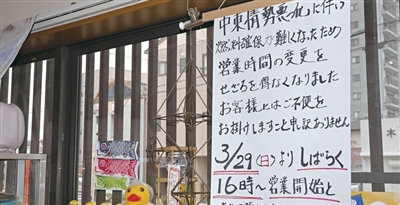 中東情勢悪化に伴い
燃料確保が難しくなったため
営業時間の変更を
せざるを得なくなりました
お客様にはご不便を
お掛けしますこと申し訳ありません
3/29(日)より しばらく
16時～営業開始と
木